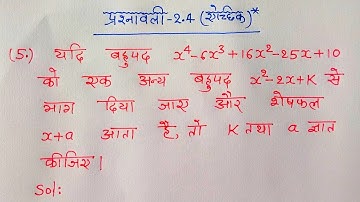 प्रश्नावली-2.4 (ऐच्छिक)*
(5.) यदि बहुपद x⁴-6x³+16x²-25x+10
को एक अन्य बहुपद x²-2x+K से
भाग दिया जाए और शेषफल
x+a आता है, तो K तथा a ज्ञात
कीजिए।
Sol: